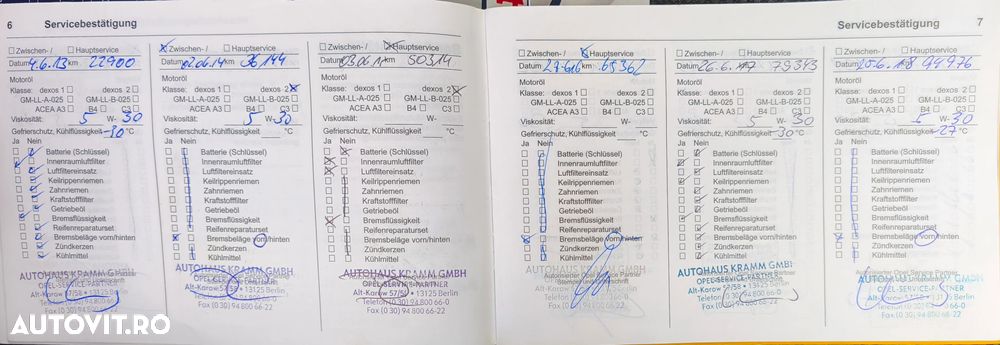 6 Servicebestätigung
Zwischen- / Hauptservice
Datum 4.6.13 km 22900
Motoröl
Klasse: dexos 1 dexos 2
GM-LL-A-025 GM-LL-B-025
ACEA A3 B4 C3
Viskosität: 5 W- 30
Gefrierschutz, Kühlflüssigkeit -30 °C
Ja Nein
Batterie (Schlüssel)
Innenraumluftfilter
Luftfiltereinsatz
Keilrippenriemen
Zahnriemen
Kraftstofffilter
Getriebeöl
Bremsflüssigkeit
Reifenreparaturset
Bremsbeläge vorn/hinten
Zündkerzen
Kühlmittel
AUTOHAUS KRAMM GMBH
OPEL-SERVICE-PARTNER
Alt-Karow 57/58 • 13125 Berlin
Telefon (0 30) 94 800 66-0
Fax (0 30) 94 800 66-22
x Zwischen- / Hauptservice
Datum 02.06.14 km 36144
Motoröl
Klasse: dexos 1 dexos 2 x
GM-LL-A-025 GM-LL-B-025
ACEA A3 B4 C3
Viskosität: 5 W- 30
Gefrierschutz, Kühlflüssigkeit °C
Ja Nein
Batterie (Schlüssel)
Innenraumluftfilter
Luftfiltereinsatz
Keilrippenriemen
Zahnriemen
Kraftstofffilter
Getriebeöl
Bremsflüssigkeit
Reifenreparaturset
Bremsbeläge vorn/hinten
Zündkerzen
Kühlmittel
AUTOHAUS KRAMM GMBH
OPEL-SERVICE-PARTNER
Alt-Karow 57/58 • 13125 Berlin
Telefon (0 30) 94 800 66-0
Fax (0 30) 94 800 66-22
Zwischen- / x Hauptservice
Datum km 50314
Motoröl
Klasse: dexos 1 dexos 2 x
GM-LL-A-025 GM-LL-B-025
ACEA A3 B4 C3
Viskosität: W-
Gefrierschutz, Kühlflüssigkeit °C
Ja Nein
Batterie (Schlüssel)
Innenraumluftfilter
Luftfiltereinsatz
Keilrippenriemen
Zahnriemen
Kraftstofffilter
Getriebeöl
Bremsflüssigkeit
Reifenreparaturset
Bremsbeläge vorn/hinten
Zündkerzen
Kühlmittel
AUTOHAUS KRAMM GMBH
OPEL-SERVICE-PARTNER
Alt-Karow 57/58 • 13125 Berlin
Telefon (0 30) 94 800 66-0
Fax (0 30) 94 800 66-22
Servicebestätigung 7
Zwischen- / Hauptservice
Datum km 65362
Motoröl
Klasse: dexos 1 dexos 2
GM-LL-A-025 GM-LL-B-025
ACEA A3 B4 C3
Viskosität: W-
Gefrierschutz, Kühlflüssigkeit °C
Ja Nein
Batterie (Schlüssel)
Innenraumluftfilter
Luftfiltereinsatz
Keilrippenriemen
Zahnriemen
Kraftstofffilter
Getriebeöl
Bremsflüssigkeit
Reifenreparaturset
Bremsbeläge vorn/hinten
Zündkerzen
Kühlmittel
Autorisierter Opel Service Partner
Stempel und Unterschrift
Zwischen- / Hauptservice
Datum 26.6.17 km 79343
Motoröl
Klasse: dexos 1 dexos 2
GM-LL-A-025 GM-LL-B-025
ACEA A3 B4 C3
Viskosität: 5 W- 30
Gefrierschutz, Kühlflüssigkeit -30 °C
Ja Nein
Batterie (Schlüssel)
Innenraumluftfilter
Luftfiltereinsatz
Keilrippenriemen
Zahnriemen
Kraftstofffilter
Getriebeöl
Bremsflüssigkeit
Reifenreparaturset
Bremsbeläge vorn/hinten
Zündkerzen
Kühlmittel
AUTOHAUS KRAMM GMBH
OPEL-SERVICE-PARTNER
Alt-Karow 57/58 • 13125 Berlin
Telefon (0 30) 94 800 66-0
Fax (0 30) 94 800 66-22
Zwischen- / Hauptservice
Datum km 94976
Motoröl
Klasse: dexos 1 dexos 2
GM-LL-A-025 GM-LL-B-025
ACEA A3 B4 C3
Viskosität: 5 W- 30
Gefrierschutz, Kühlflüssigkeit -27 °C
Ja Nein
Batterie (Schlüssel)
Innenraumluftfilter
Luftfiltereinsatz
Keilrippenriemen
Zahnriemen
Kraftstofffilter
Getriebeöl
Bremsflüssigkeit
Reifenreparaturset
Bremsbeläge vorn/hinten
Zündkerzen
Kühlmittel
Autorisierter Opel Service Partner
AUTOHAUS KRAMM GMBH
OPEL-SERVICE-PARTNER
Alt-Karow 57/58 • 13125 Berlin
Telefon (0 30) 94 800 66-0
Fax (0 30) 94 800 66-22
AUTOVIT.RO